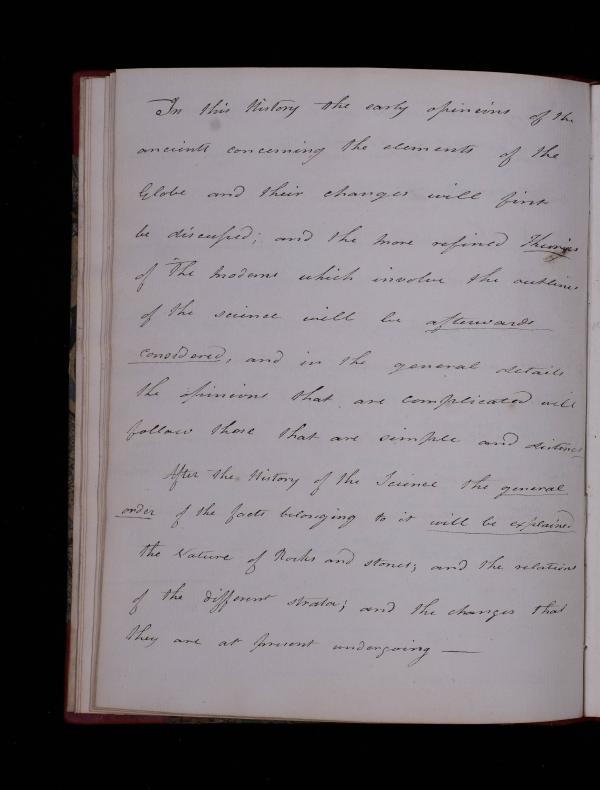 In this History the early opinions of the
ancients concerning the elements of the
Globe and their changes will first
be discussed; and the more refined Theories
of the moderns which involve the outline
of the science will be afterwards
considered, and in the general details
the opinions that are complicated will
follow those that are simple and distinct
After the History of the Science the general
order of the facts belonging to it will be explained
the Nature of Rocks and stones; and the relations
of the different strata; and the changes that
they are at present undergoing —